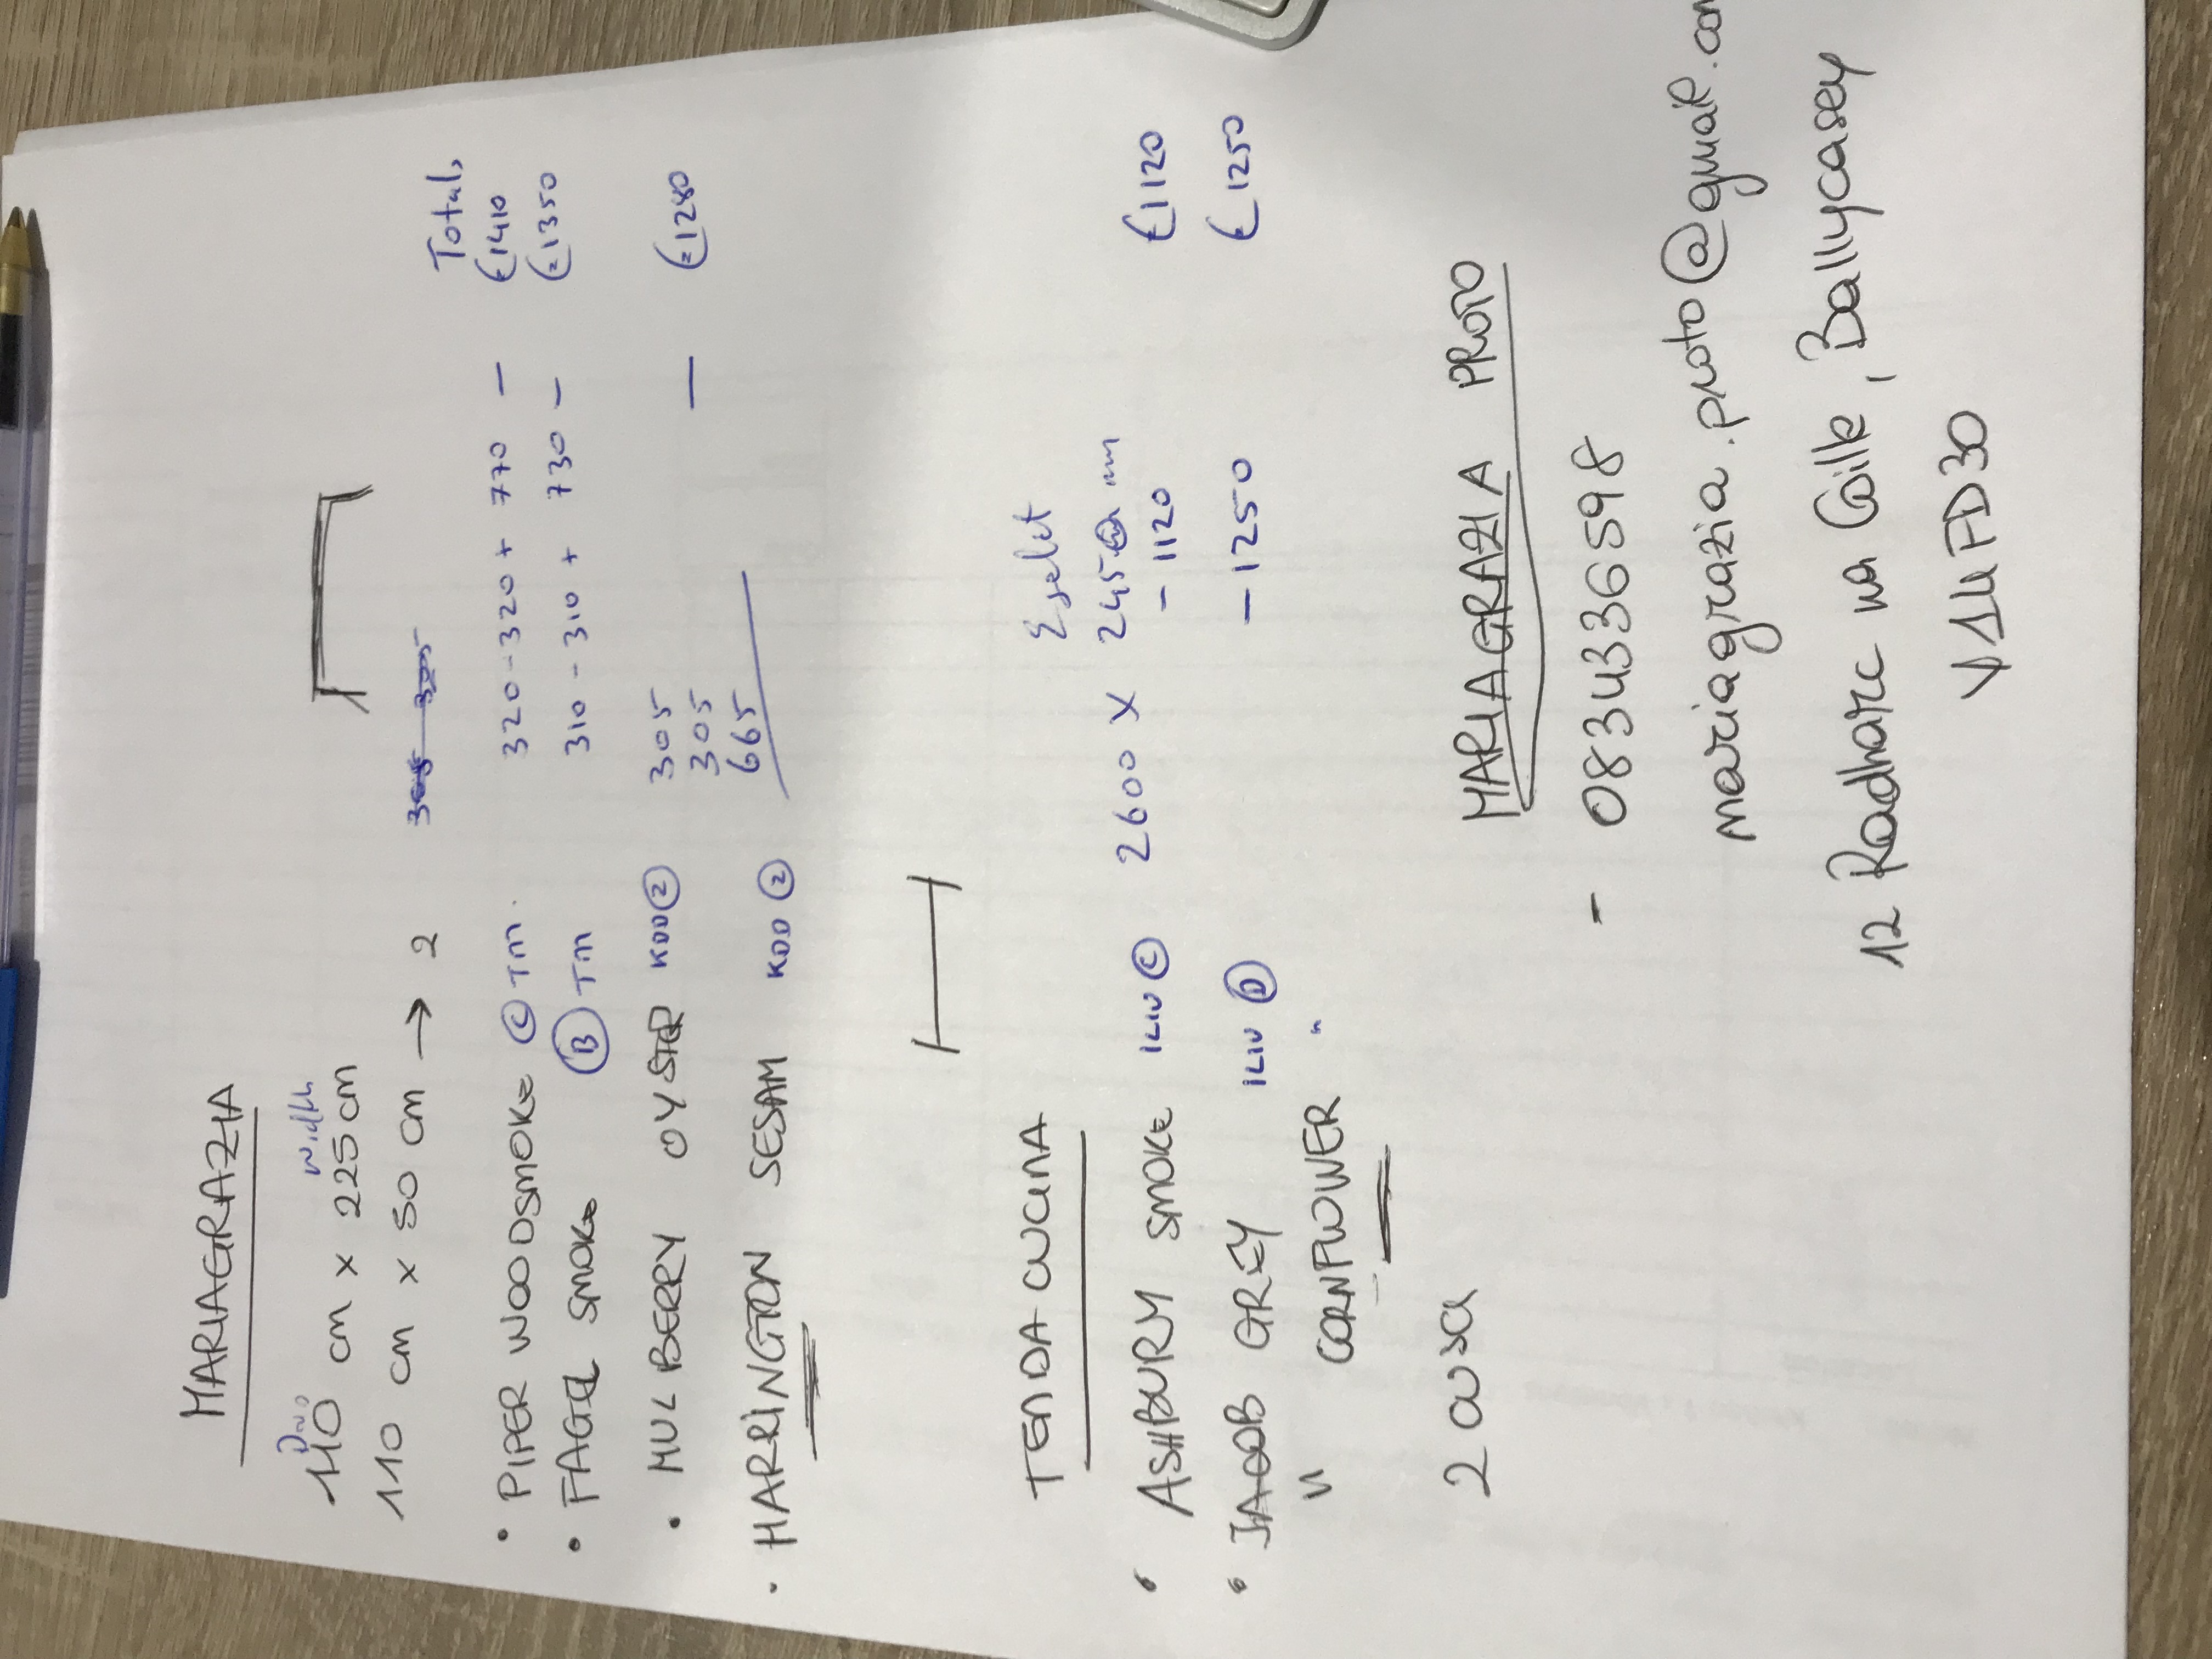 MARIAGRAZIA
Drop width
110 cm x 225 cm
110 cm x 50 cm → 2
Totals
• PIPER WOODSMOKE Ⓒ TM. 320-320+ 770 — €1410
• FAGEL SMOKE Ⓑ TM 310-310+ 730 — €1350
• MULBERRY OYSTER KDD② 305 — €1280
305
665
• HARRINGTON SESAM KDD ②
TENDA CUCINA
2600 x 2450 mm
• ASHBURY SMOKE ILIV Ⓒ - 1120 €1120
• JACOB GREY ILIV Ⓓ - 1250 €1250
" CORNFLOWER "
MARIAGRAZIA PROTO
- 0834336598
mariagrazia.proto@gmail.com
12 Radharc na Coille, Ballycasey
V14FD30